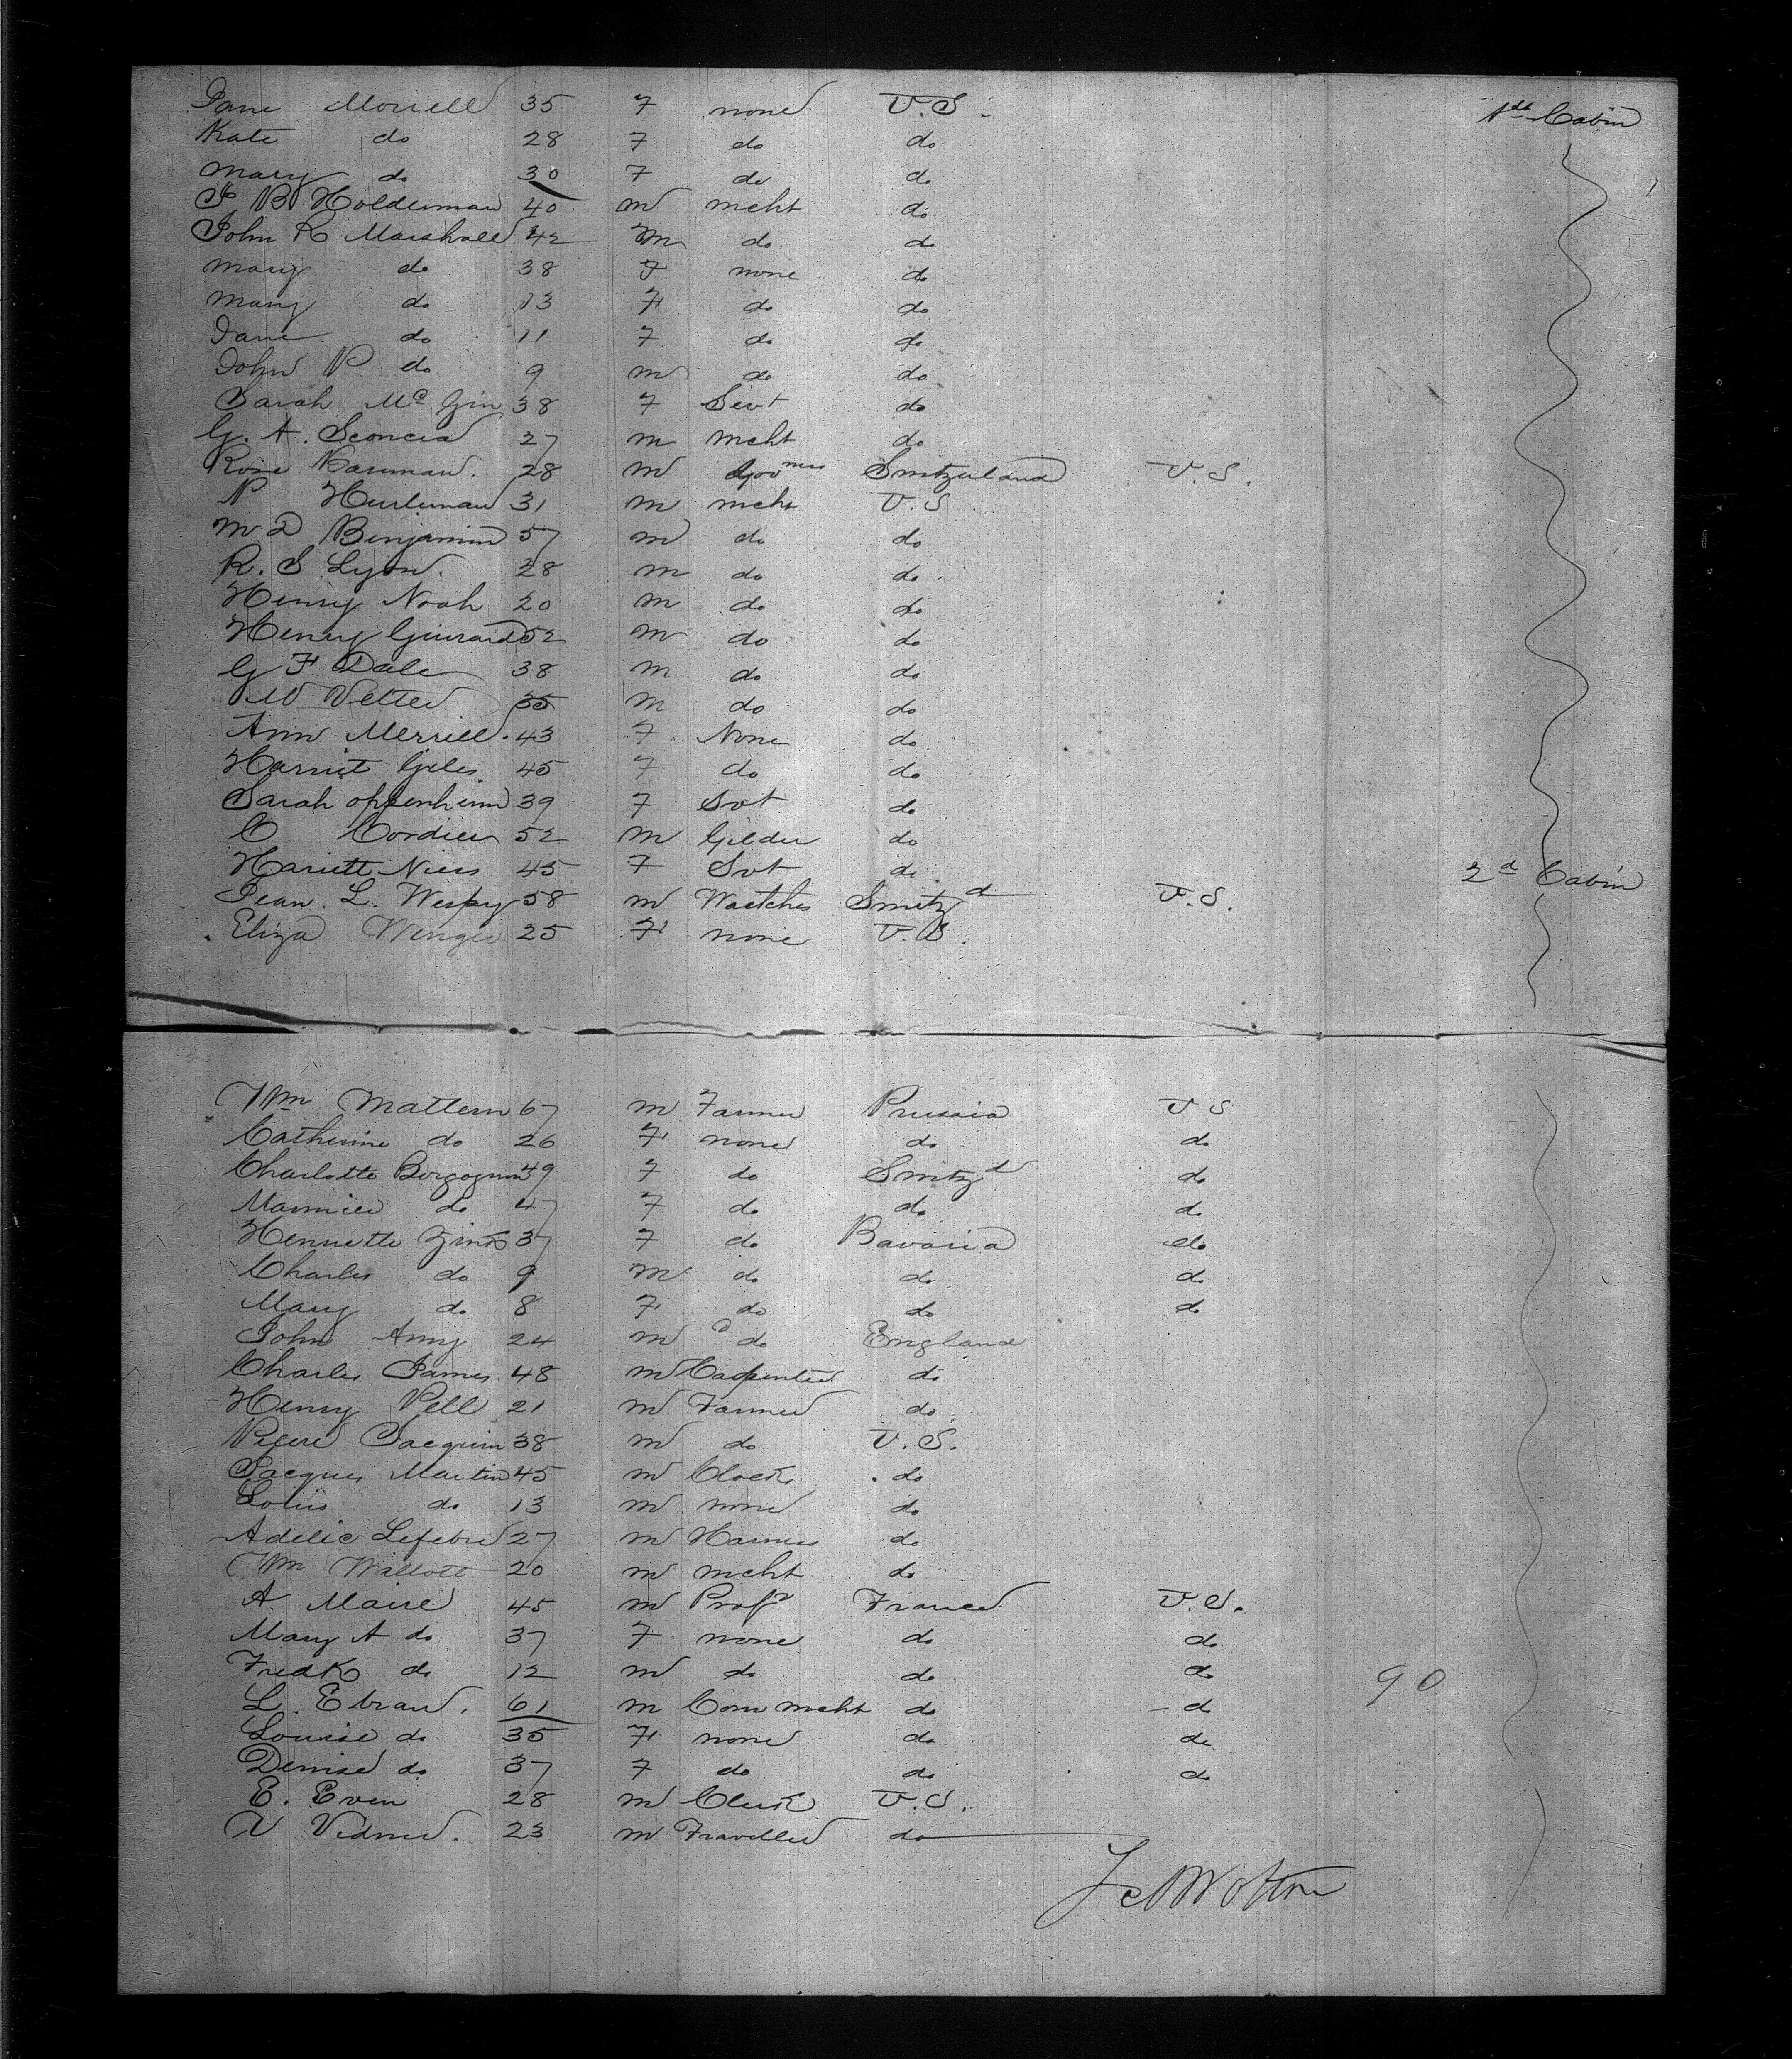 Jane Morrell 35 F none U.S. 1st Cabin
Kate do 28 F do do
Mary do 30 F do do
B Holderman 40 M mcht do
John R Marshall 42 M do do
Mary do 38 F none do
Mary do 13 F do do
Jane do 11 F do do
John P do 9 M do do
Sarah Mc Gin 38 F Servt do
G. A. Sconcia 27 M mcht do
Rose Bauman. 28 M Govness Switzerland U.S.
P Hurleman 31 M mcht U.S
M D Benjamin 57 M do do
R. S Lyon. 28 M do do
Henry Noah 20 M do do
Henry Guiraid 52 M do do
G F Dale 38 M do do
W Vetter 35 M do do
Ann Merrill. 43 F None do
Harriet Giles 45 F do do
Sarah oppenheim 39 F Svt do
C Cordier 52 M Gilder do
Hariett Niess 45 F Svt do 2d Cabin
Jean. L. Wespy 58 M Watches Switzd U.S.
Eliza Wenger 25 F none U.S.
Wm Mattern 67 M Farmer Prussia U S
Catherine do 26 F none do do
Charlotte 49 F do Switzd do
do 47 F do do do
Henriette 37 F do Bavaria do
Charles do 9 M do do do
Mary do 8 F do do do
John Amy 24 M do England
Charles James 48 M Carpenter do
Henry Pell 21 M Farmer do
Pierre Jacquin 38 M do U.S.
Jacques Martin 45 M Clocks do
Louis do 13 M none do
Adelie Lefebre 27 M Harness do
Wm Wallott 20 M mcht do
A Maire 45 M Profr France U.S.
Mary A do 37 F none do do
Fredk do 12 M do do do 90
L. Ebrau. 61 M Com mcht do do
Louise do 35 F none do do
Denise do 37 F do do do
E. Even 28 M Clerk U.S.
V Vidmer. 23 M Traveller do